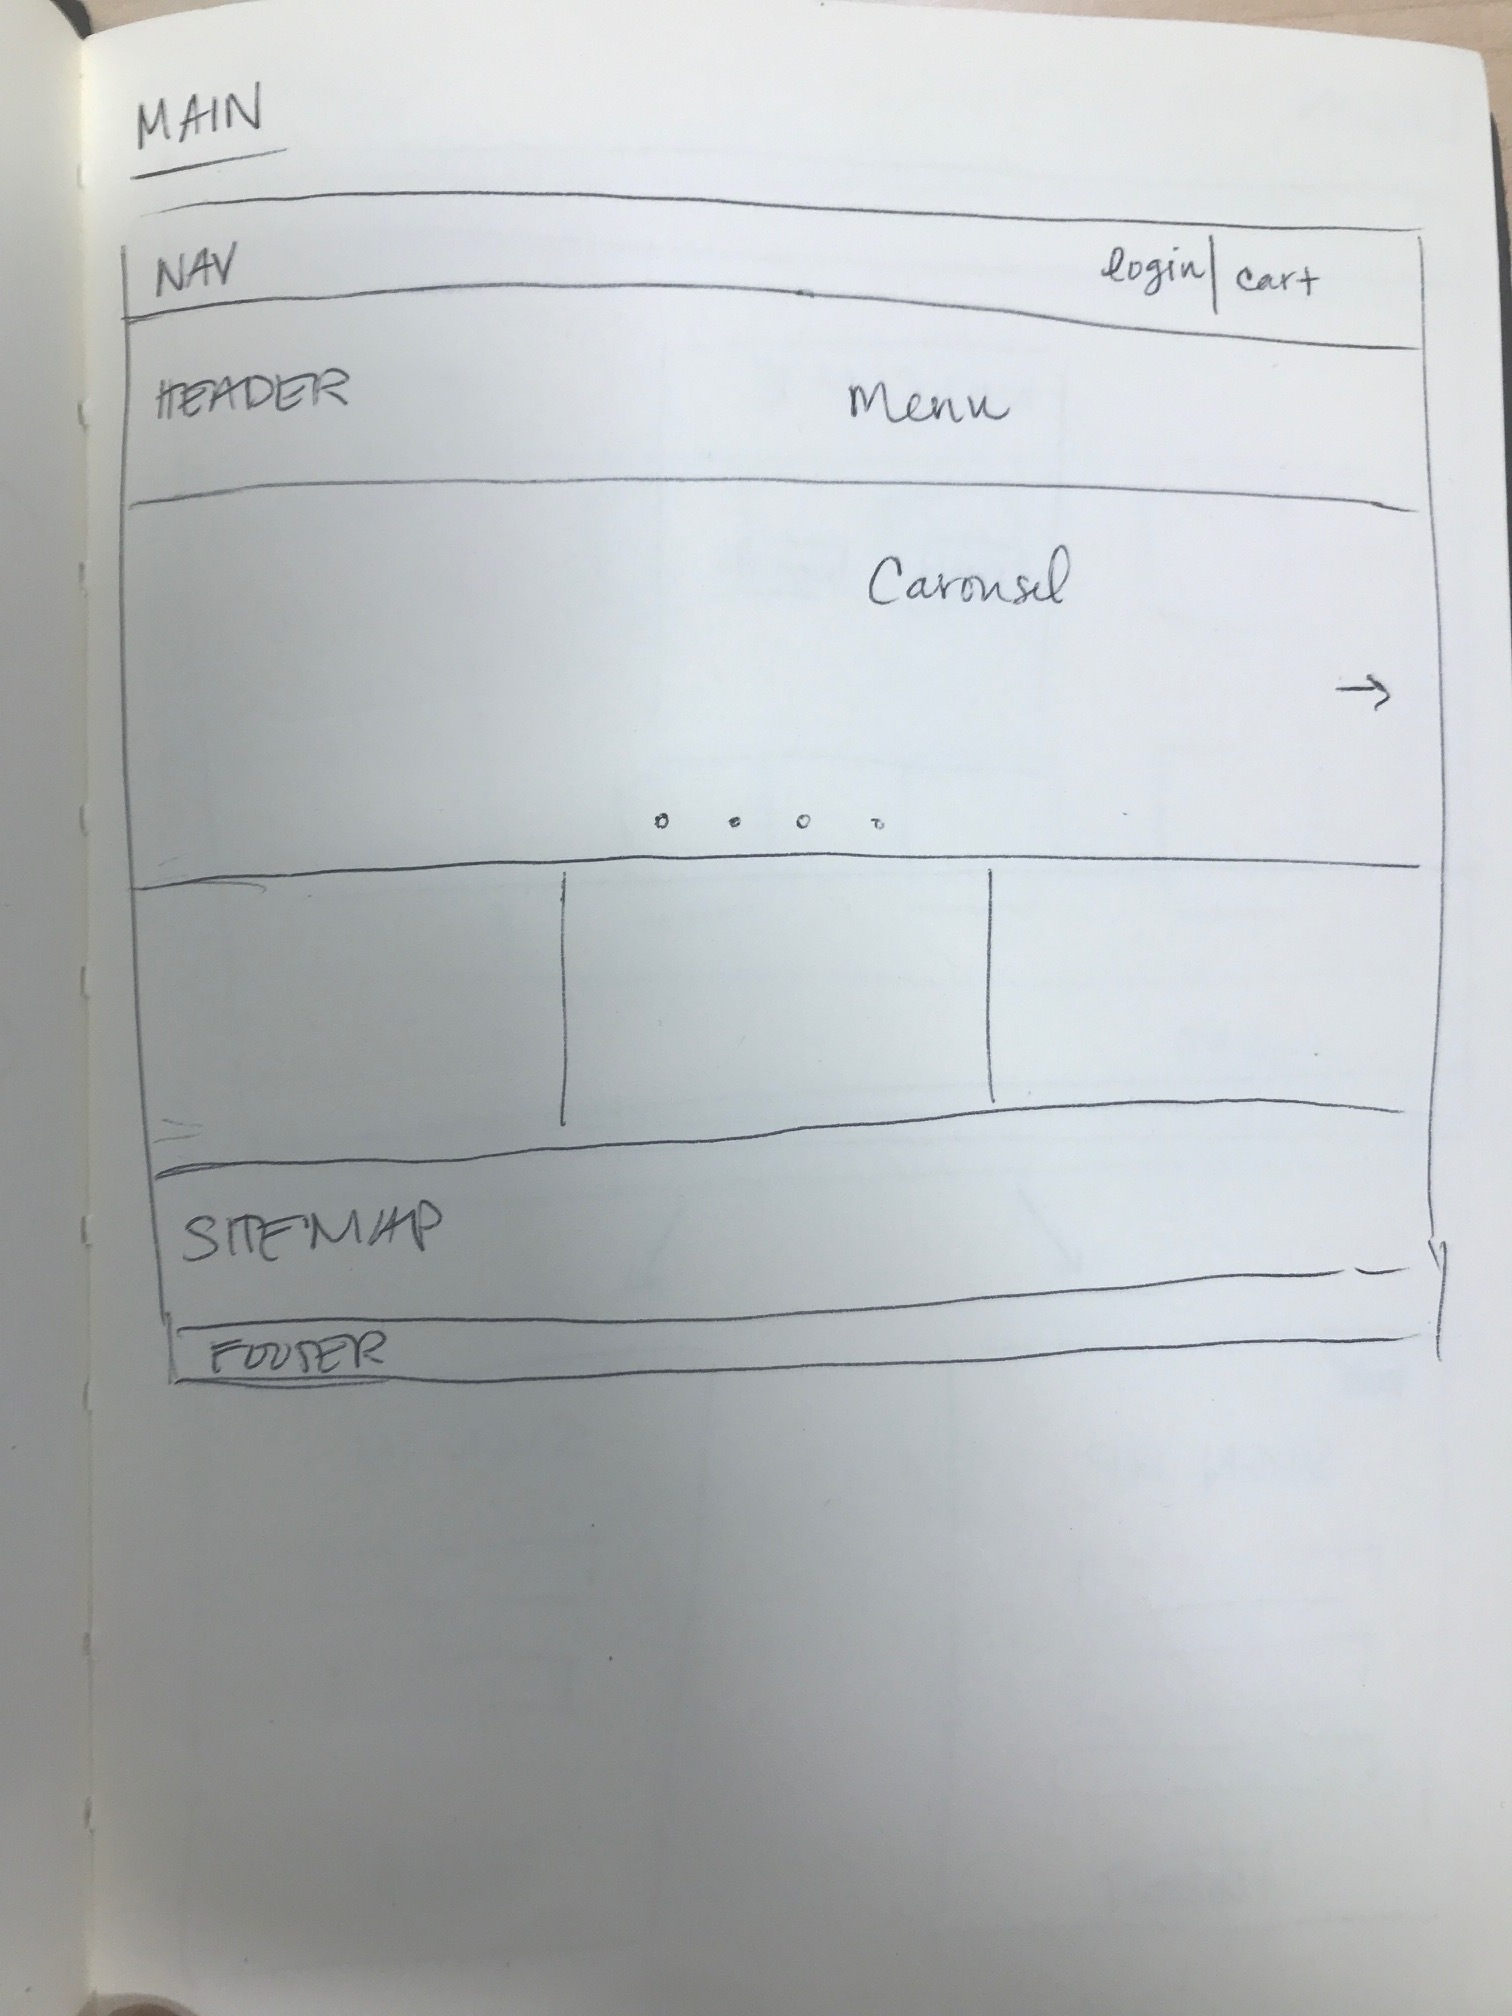 MAIN
NAV login | cart
HEADER Menu
Carousel
SITEMAP
FOOTER